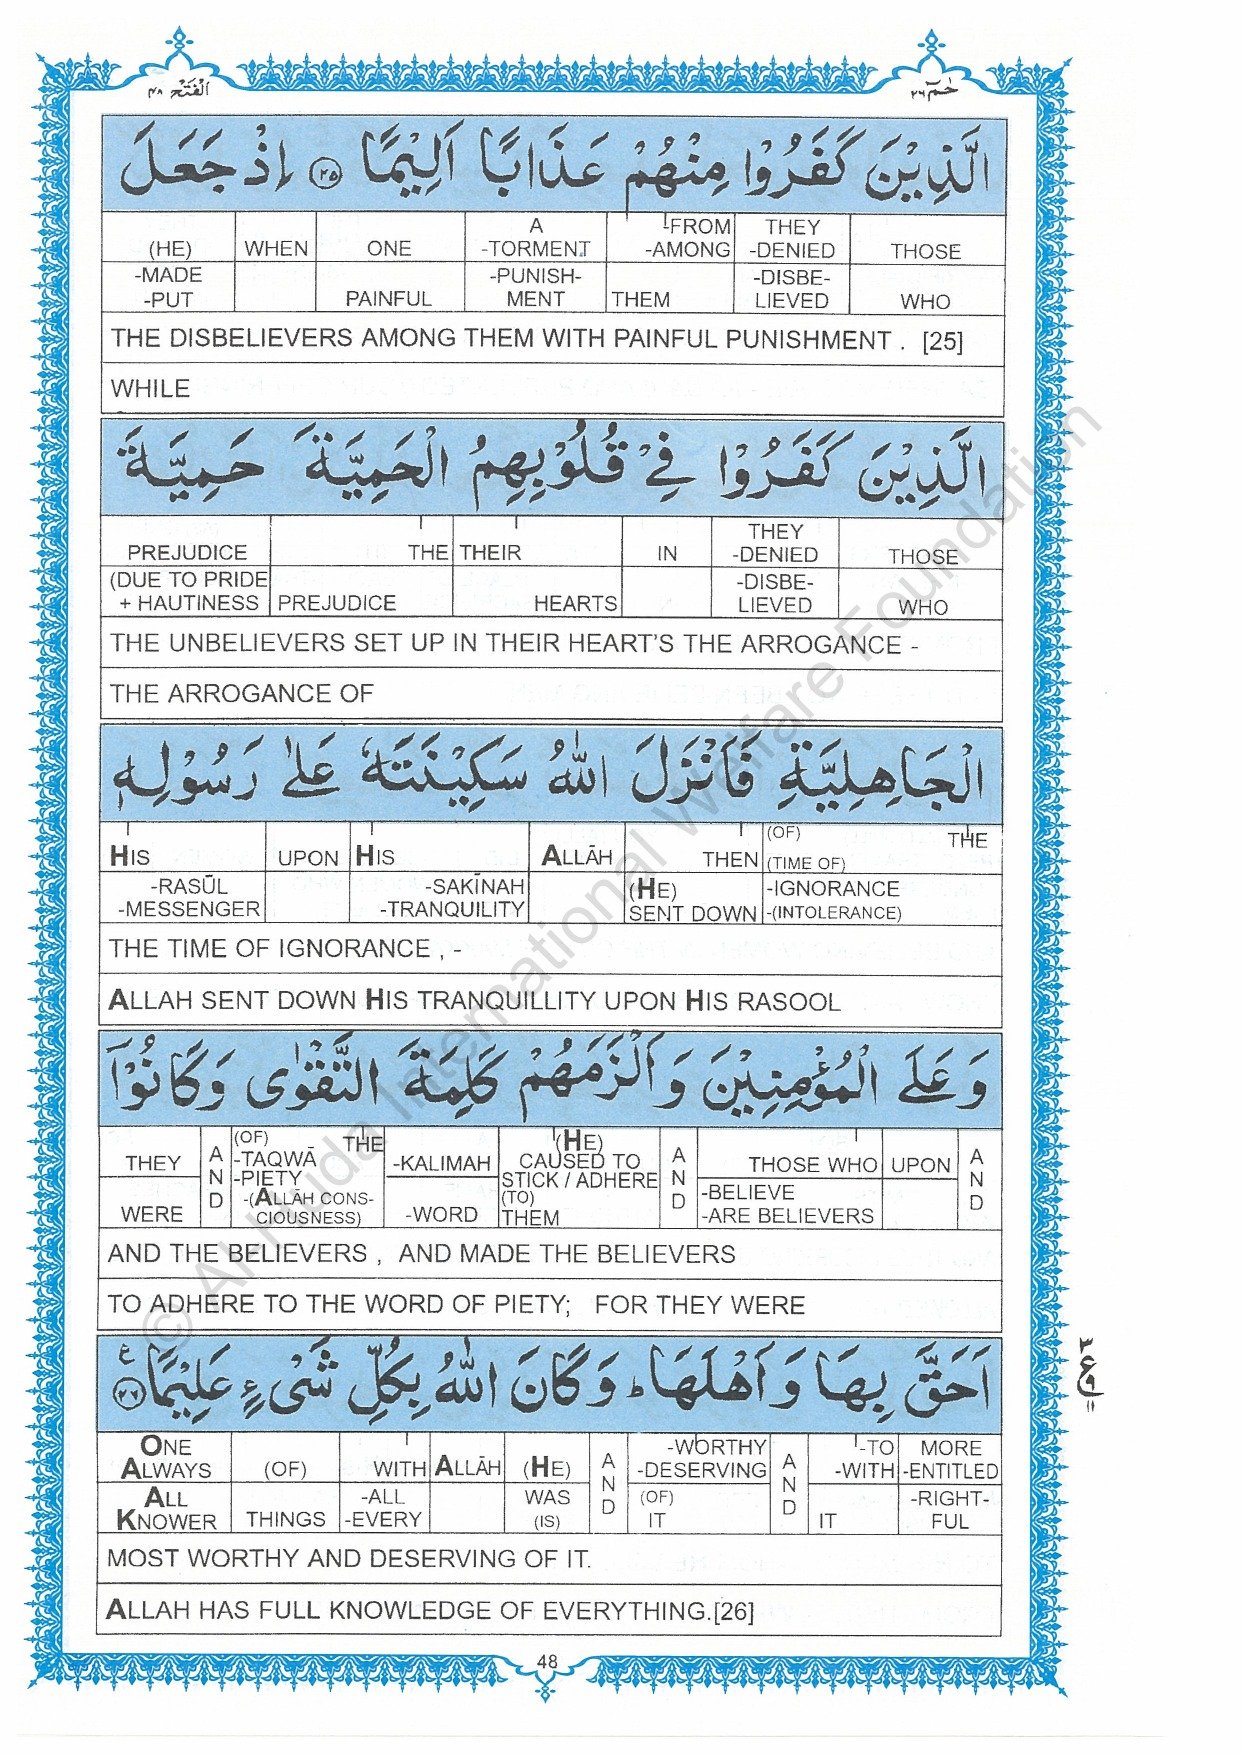 الْفَتْح ٤٨
حٰمٓ ٢٦
الَّذِيْنَ كَفَرُوْا مِنْهُمْ عَذَابًا اَلِيْمًا ۝٢٥ اِذْ جَعَلَ
(HE) WHEN ONE A -TORMENT -FROM -AMONG THEY -DENIED THOSE
-MADE -PUT PAINFUL -PUNISH- MENT THEM -DISBE- LIEVED WHO
THE DISBELIEVERS AMONG THEM WITH PAINFUL PUNISHMENT . [25]
WHILE
الَّذِيْنَ كَفَرُوْا فِيْ قُلُوْبِهِمُ الْحَمِيَّةَ حَمِيَّةَ
PREJUDICE THE THEIR IN THEY -DENIED THOSE
(DUE TO PRIDE + HAUTINESS PREJUDICE HEARTS -DISBE- LIEVED WHO
THE UNBELIEVERS SET UP IN THEIR HEART'S THE ARROGANCE -
THE ARROGANCE OF
الْجَاهِلِيَّةِ فَاَنْزَلَ اللّٰهُ سَكِيْنَتَهٗ عَلٰى رَسُوْلِهٖ
HIS UPON HIS ALLĀH THEN (OF) THE (TIME OF)
-RASŪL -MESSENGER -SAKĪNAH -TRANQUILITY (HE) SENT DOWN -IGNORANCE -(INTOLERANCE)
THE TIME OF IGNORANCE , -
ALLAH SENT DOWN HIS TRANQUILLITY UPON HIS RASOOL
وَ عَلَى الْمُؤْمِنِيْنَ وَ اَلْزَمَهُمْ كَلِمَةَ التَّقْوٰى وَ كَانُوْٓا
THEY AND (OF) THE -TAQWĀ -KALIMAH (HE) CAUSED TO AND THOSE WHO UPON AND
WERE -PIETY -(ALLĀH CONS- CIOUSNESS) -WORD STICK / ADHERE (TO) THEM -BELIEVE -ARE BELIEVERS
AND THE BELIEVERS , AND MADE THE BELIEVERS
TO ADHERE TO THE WORD OF PIETY; FOR THEY WERE
اَحَقَّ بِهَا وَ اَهْلَهَا ؕ وَ كَانَ اللّٰهُ بِكُلِّ شَيْءٍ عَلِيْمًا ۝٢٦ ع
ONE ALWAYS (OF) WITH ALLĀH (HE) AND -WORTHY -DESERVING AND -TO -WITH MORE -ENTITLED
ALL KNOWER THINGS -ALL -EVERY WAS (IS) (OF) IT IT -RIGHT- FUL
MOST WORTHY AND DESERVING OF IT.
ALLAH HAS FULL KNOWLEDGE OF EVERYTHING.[26]
٣
ع
٩
١١
48
© Al Huda International Welfare Foundation